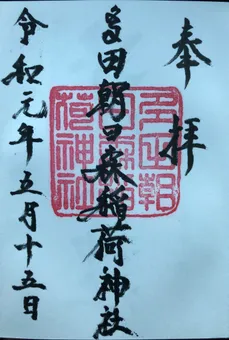 奉拝
多田朝日森稲荷神社
令和元年五月十五日
多田朝日森稲荷神社